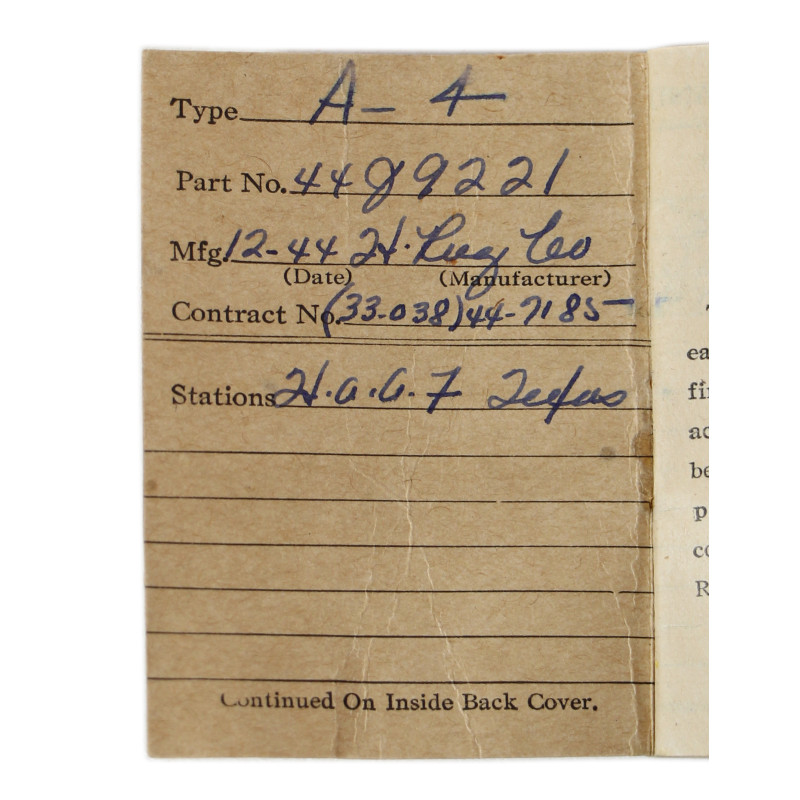 Type A-4
Part No. 44J9221
Mfg. 12-44 H. Rug Co
(Date) (Manufacturer)
Contract No. (33-038)44-7185
Stations H.A.A.F Texas
ea
fi
ac
be
p
co
R
Continued On Inside Back Cover.